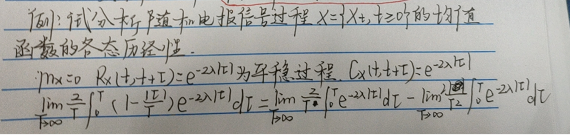 例:试分析随机电报信号过程 X={Xt,t≥0}的均值
函数的各态历经性.
∵mx=0 Rx(t,t+τ)=e^{-2λ|τ|}为平稳过程. Cx(t,t+τ)=e^{-2λ|τ|}
lim_{T→∞} 2/T ∫_0^T (1-|τ|/T)e^{-2λ|τ|}dτ = lim_{T→∞} 2/T ∫_0^T e^{-2λ|τ|}dτ - lim_{T→∞} /T² ∫_0^T e^{-2λ|τ|}dτ